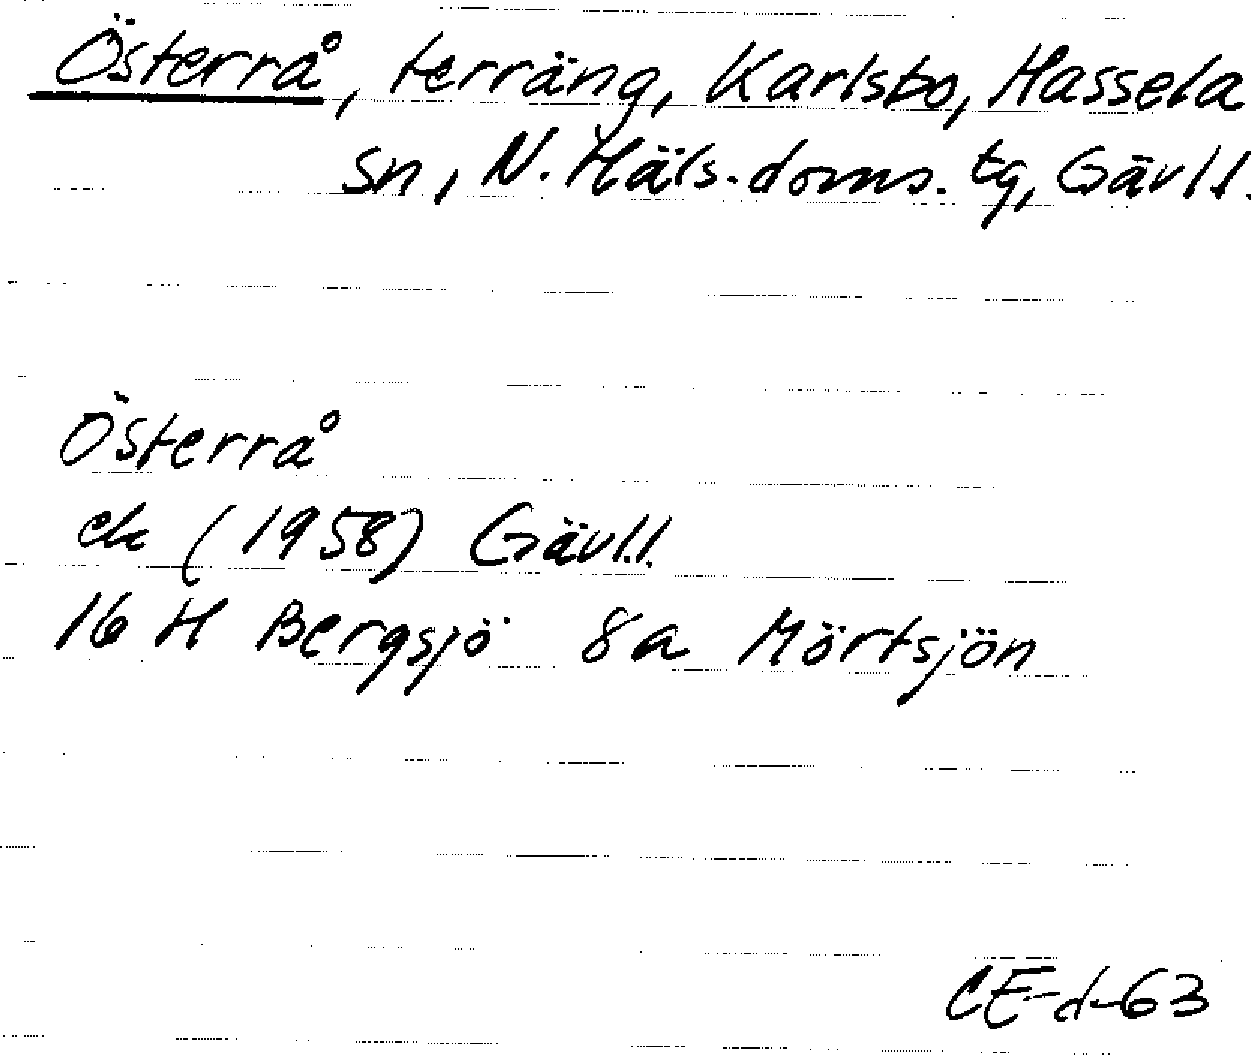 Österrå, terräng, Karlsbo, Hassela
sn, N. Häls. doms. tg, Gävl.l.
Österrå
ek (1958) Gävl.l.
16 H Bergsjö 8a Mörtsjön
CE-d-63